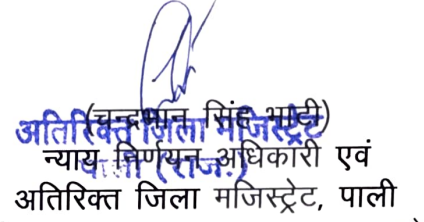 (चन्द्रभान सिंह भाटी)
अतिरिक्त जिला मजिस्ट्रेट
पाली (राज.)
न्याय निर्णयन अधिकारी एवं
अतिरिक्त जिला मजिस्ट्रेट, पाली